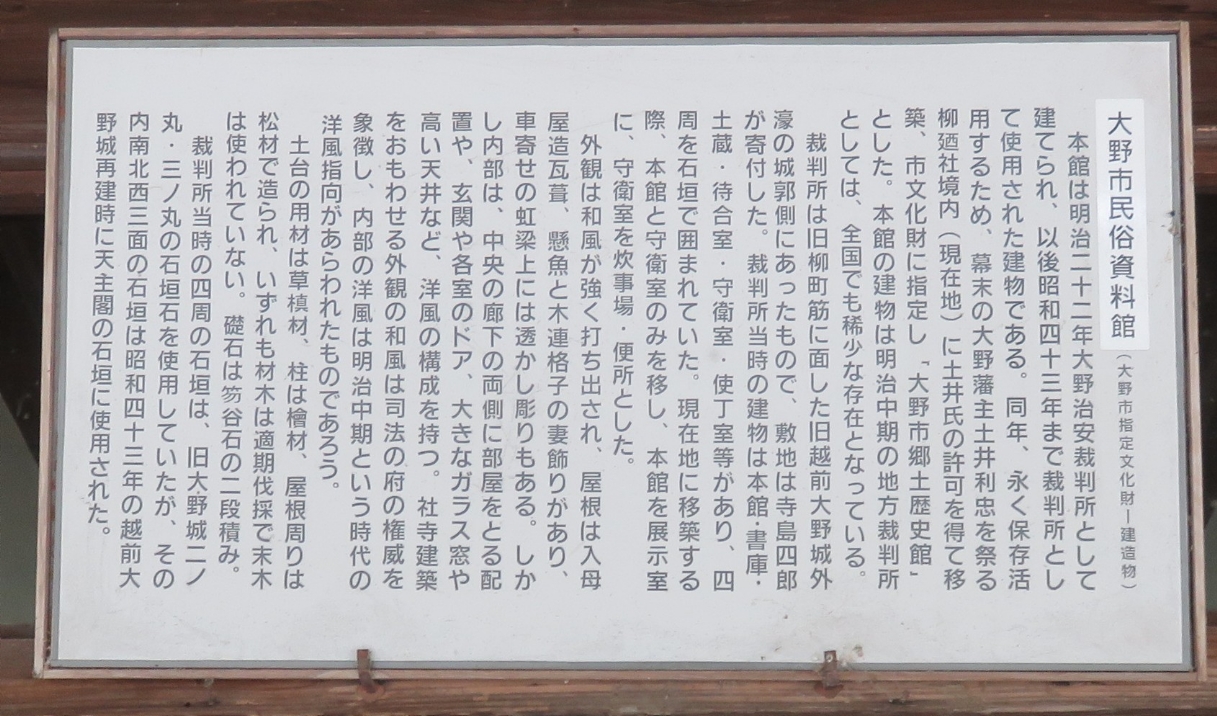 大野市民俗資料館（大野市指定文化財ー建造物）
本館は明治二十二年大野治安裁判所として
建てられ、以後昭和四十三年まで裁判所とし
て使用された建物である。同年、永く保存活
用するため、幕末の大野藩主土井利忠を祭る
柳廼社境内（現在地）に土井氏の許可を得て移
築、市文化財に指定し「大野市郷土歴史館」
とした。本館の建物は明治中期の地方裁判所
としては、全国でも稀少な存在となっている。
裁判所は旧柳町筋に面した旧越前大野城外
濠の城郭側にあったもので、敷地は寺島四郎
が寄付した。裁判所当時の建物は本館・書庫・
土蔵・待合室・守衛室・使丁室等があり、四
周を石垣で囲まれていた。現在地に移築する
際、本館と守衛室のみを移し、本館を展示室
に、守衛室を炊事場・便所とした。
外観は和風が強く打ち出され、屋根は入母
屋造瓦葺、懸魚と木連格子の妻飾りがあり、
車寄せの虹梁上には透かし彫りもある。しか
し内部は、中央の廊下の両側に部屋をとる配
置や、玄関や各室のドア、大きなガラス窓や
高い天井など、洋風の構成を持つ。社寺建築
をおもわせる外観の和風は司法の府の権威を
象徴し、内部の洋風は明治中期という時代の
洋風指向があらわれたものであろう。
土台の用材は草槙材、柱は檜材、屋根周りは
松材で造られ、いずれも材木は適期伐採で末木
は使われていない。礎石は笏谷石の二段積み。
裁判所当時の四周の石垣は、旧大野城二ノ
丸・三ノ丸の石垣石を使用していたが、その
内南北西三面の石垣は昭和四十三年の越前大
野城再建時に天主閣の石垣に使用された。